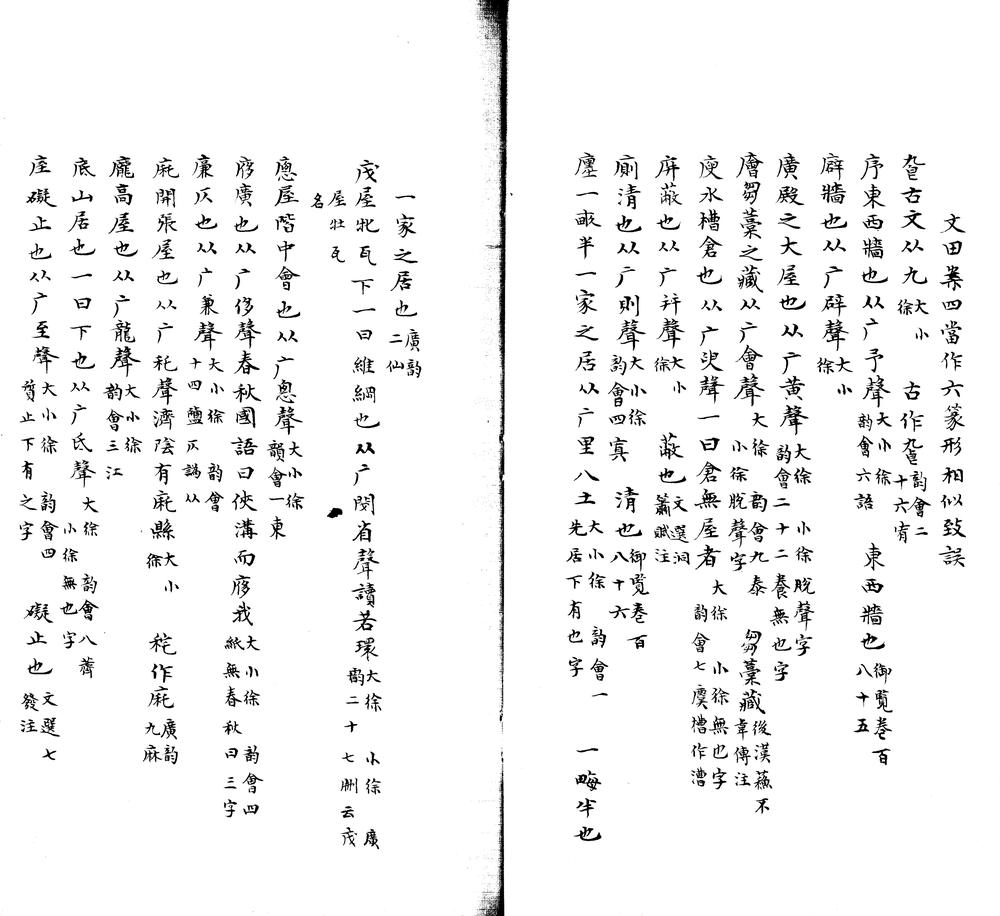 文田案四當作六篆形相似致誤
㡯古文从九大小徐 古作㡯韵會二十六宥
序東西牆也从广予聲大小徐韵會六語 東西牆也御覽卷百八十五
廦牆也从广辟聲大小徐
廣殿之大屋也从广黄聲大徐 小徐脫聲字韵會二十二養無也字
廥芻藁之藏从广會聲大徐 韵會九泰小徐脫聲字 芻藁藏後漢蘇不韋傳注
庾水槽倉也从广臾聲一曰倉無屋者大徐 小徐無也字韵會七麌槽作漕
屏蔽也从广幷聲大小徐 蔽也文選洞簫賦注
廁清也从广則聲大小徐韵會四寘 清也御覽卷百八十六
廛一畝半一家之居从广里八土大小徐 韵會一先居下有也字 一畮半也
一家之居也廣韵二仙
庉屋牝瓦下一曰維綱也从广閔省聲讀若環大徐 小徐 廣韵二十七刪云庉屋牡瓦名
廖屋階中會也从广悤聲大小徐韻會一東
廖廣也从广侈聲春秋國語曰俠溝而廖我大小徐 韵會四紙無春秋曰三字
廉仄也从广兼聲大小徐 韵會十四鹽仄譌从
庍開張屋也从广秅聲濟陰有庍縣大小徐 秺作庍廣韵九麻
龐高屋也从广龍聲大小徐韵會三江
底山居也一曰下也从广氐聲大徐 韵會八薺小徐無也字
庢礙止也从广至聲大小徐 韵會四質止下有之字 礙止也文選七發注